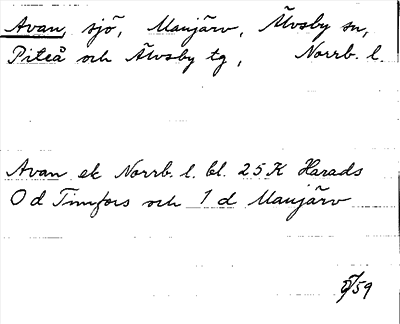 Avan, sjö, Manjärv, Älvsby sn,
Piteå och Älvsby tg, Norrb. l.
Avan ek Norrb. l. bl. 25 K Harads
0 d Timfors och 1 d Manjärv
5/59